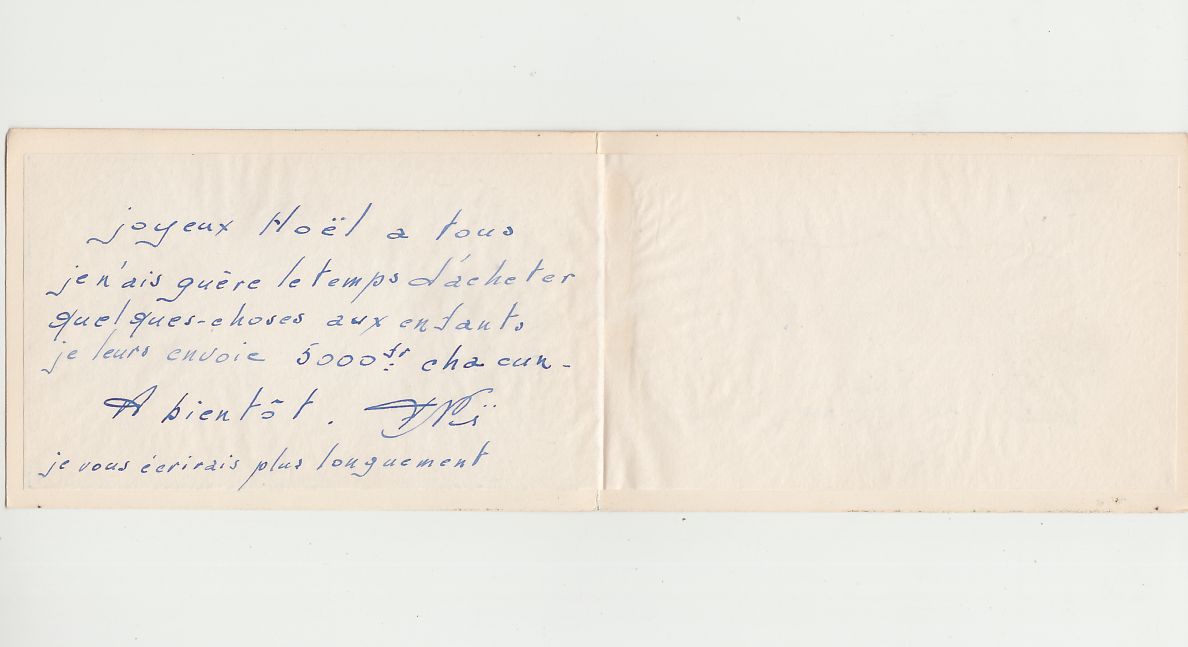 joyeux Noël a tous
je n'ais guère le temps d'acheter
quelques-choses aux enfants
je leurs envoie 5000 fr chacun -
A bientôt.
je vous écrirais plus longuement